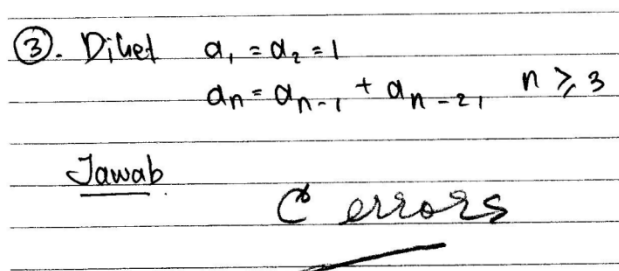 ③. Diket a₁ = a₂ = 1
aₙ = aₙ₋₁ + aₙ₋₂, n ≥ 3
Jawab
errors